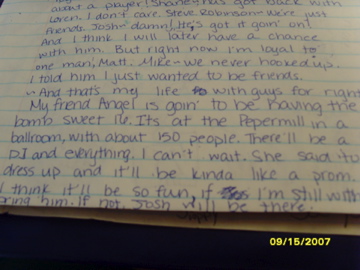 about a player! Shane has got back with
Loren. I don't care. Steve Robinson-We're just
friends. Josh-damn! He's got it goin' on!
And I think I will later have a chance
with him. But right now I'm loyal to
one man, Matt. Mike-we never hooked up.
I told him I just wanted to be friends.
~And that's my life with guys for right
My frend Angel is goin' to be having the
bomb sweet 16. Its at the Pepermill in a
ballroom, with about 150 people. There'll be a
DJ and everything. I can't wait. She said to
dress up and it'll be kinda like a prom.
I think it'll be so fun, if I'm still with
bring him. If not, Josh will be there.
09/15/2007